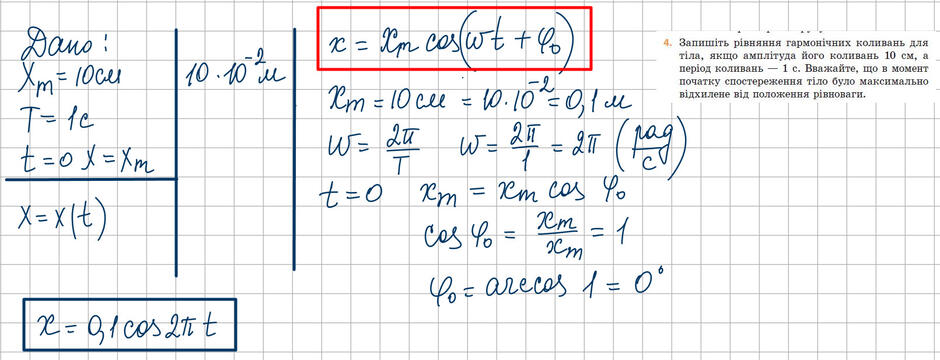 Дано:
Xm = 10см
10·10⁻² м
T = 1с
t = 0 X = Xm
X = X(t)
x = 0,1 cos 2π t
x = xm cos(ωt + φ₀)
xm = 10см = 10·10⁻² = 0,1 м
ω = 2π/T ω = 2π/1 = 2π (рад/с)
t = 0 xm = xm cos φ₀
cos φ₀ = xm/xm = 1
φ₀ = arccos 1 = 0°
4. Запишіть рівняння гармонічних коливань для
тіла, якщо амплітуда його коливань 10 см, а
період коливань — 1 с. Вважайте, що в момент
початку спостереження тіло було максимально
відхилене від положення рівноваги.